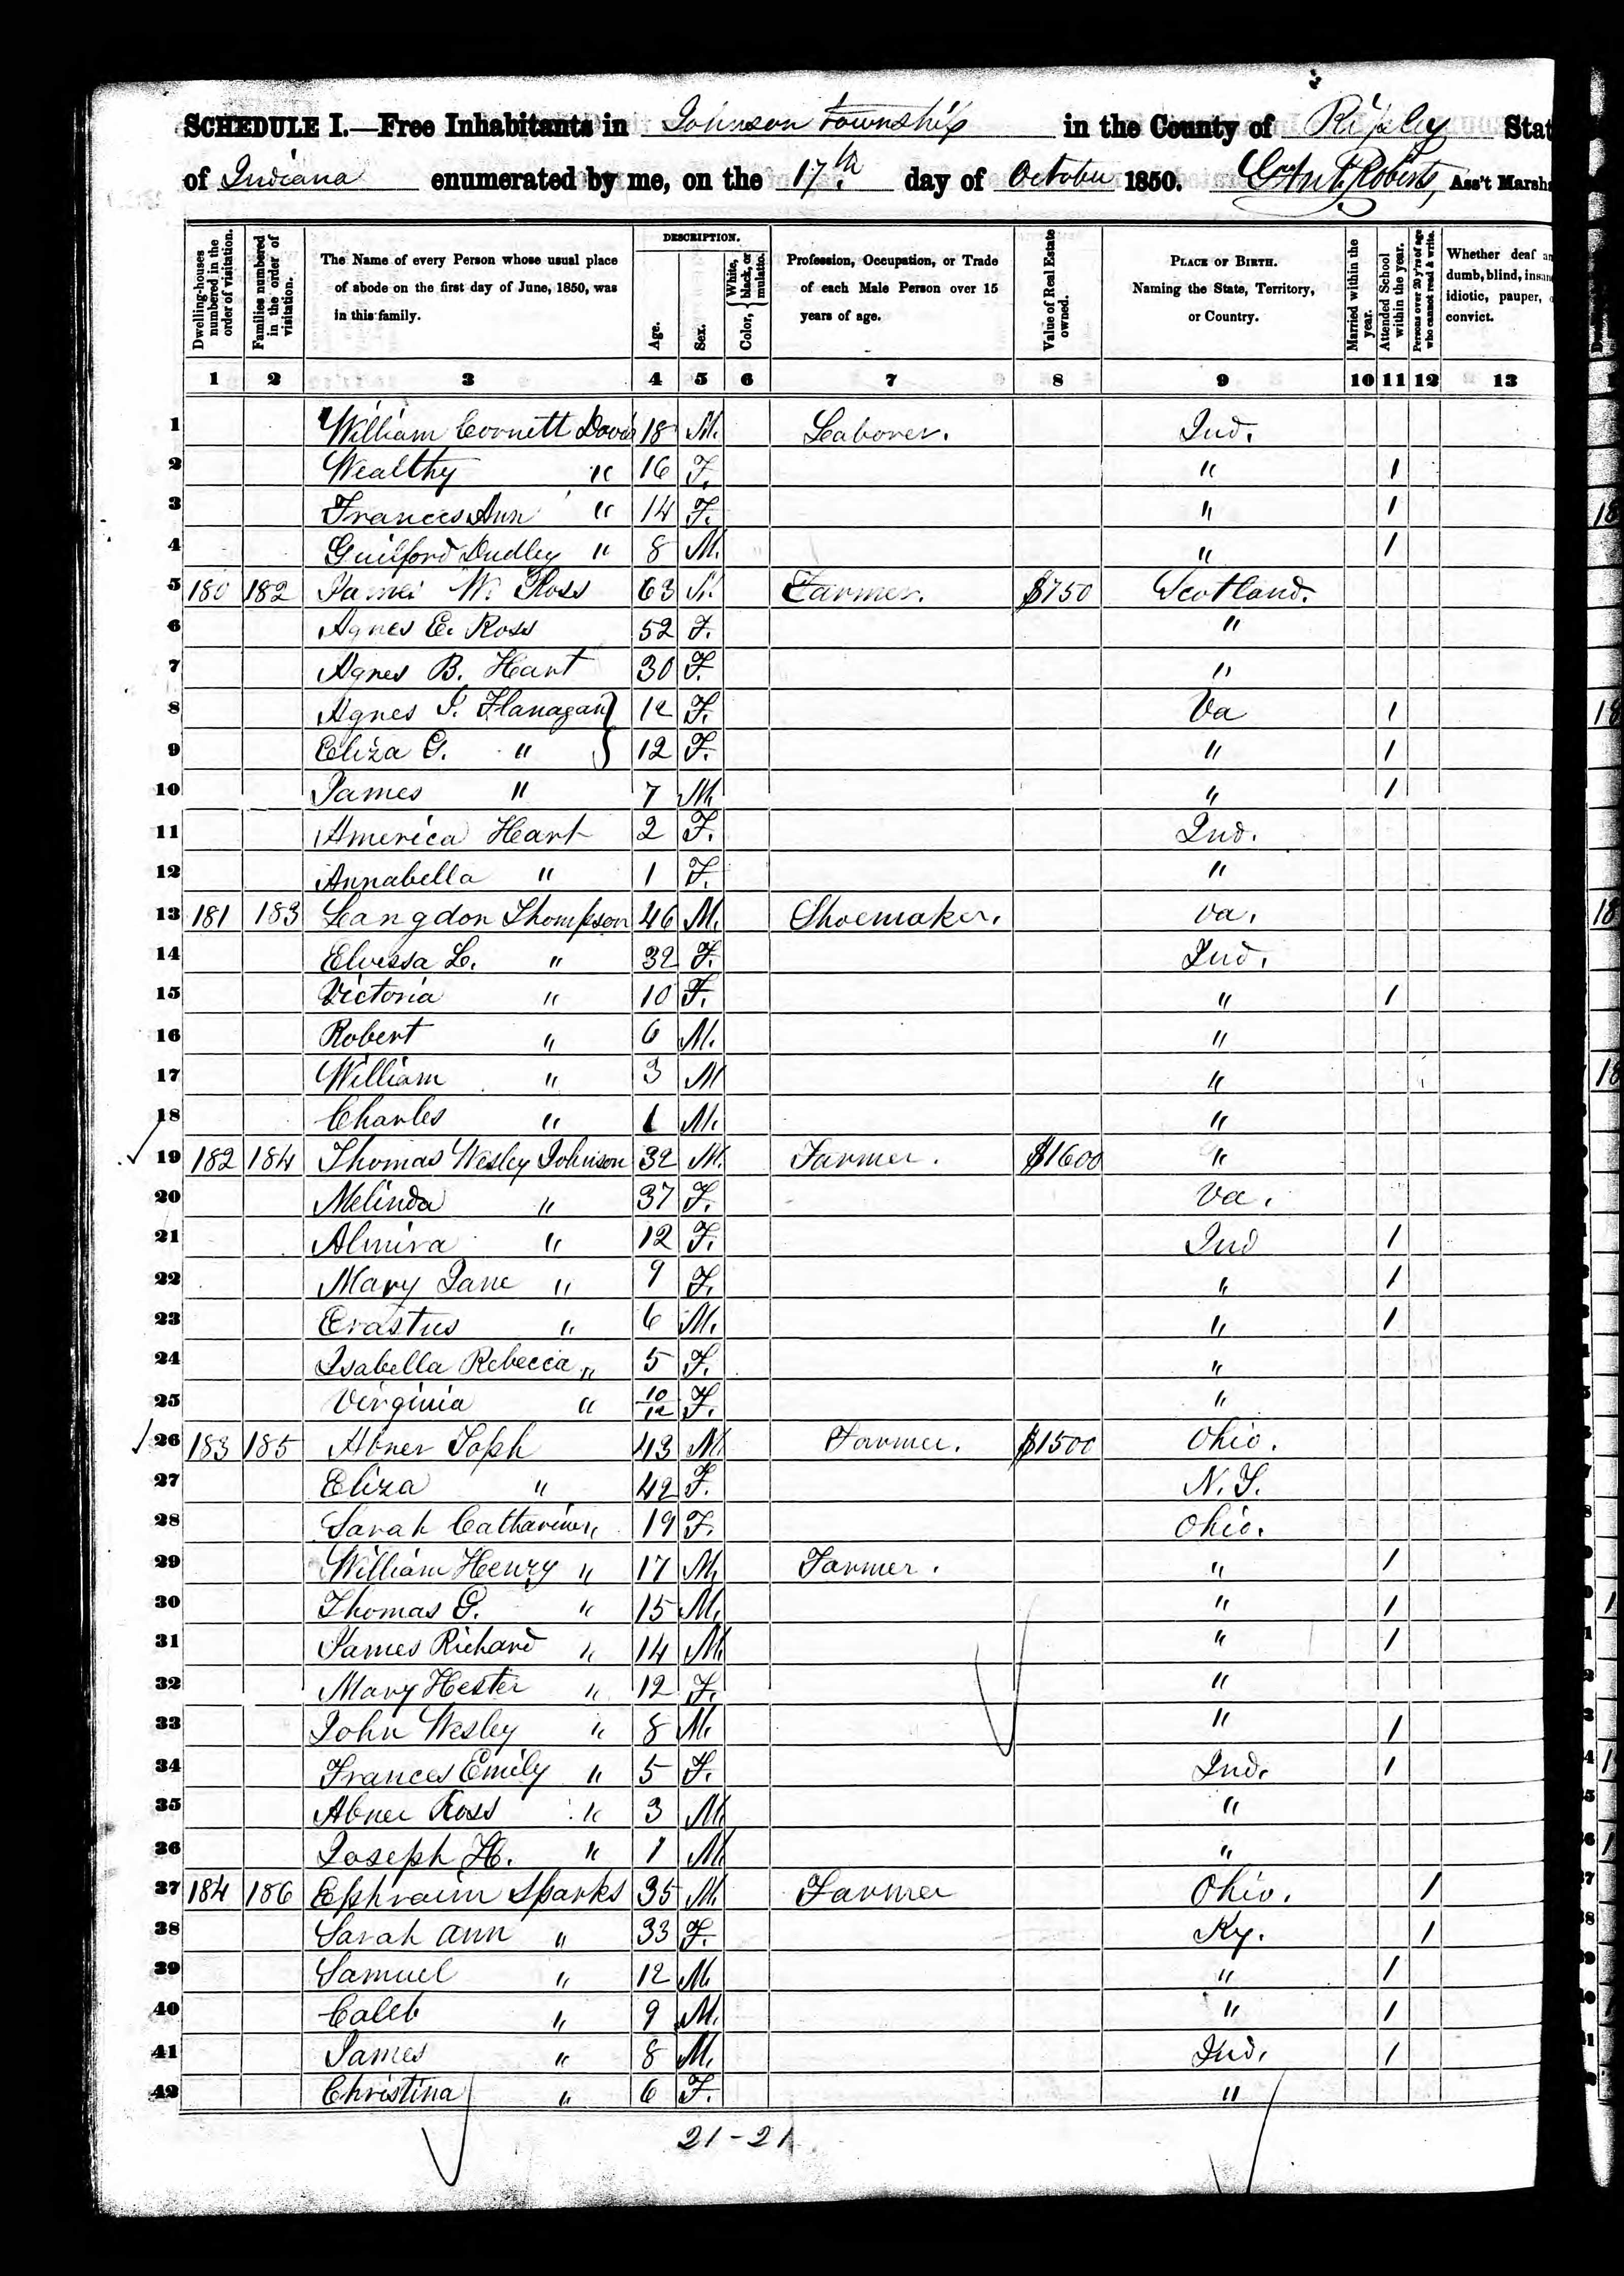 SCHEDULE I.—Free Inhabitants in Johnson township in the County of Ripley Stat
of Indiana enumerated by me, on the 17th day of October 1850. Roberts, Ass't Marsha
Dwelling-houses numbered in the order of visitation.
Families numbered in the order of visitation.
The Name of every Person whose usual place of abode on the first day of June, 1850, was in this family.
DESCRIPTION.
Age.
Sex.
Color, { White, black, or mulatto.
Profession, Occupation, or Trade of each Male Person over 15 years of age.
Value of Real Estate owned.
PLACE OF BIRTH. Naming the State, Territory, or Country.
Married within the year.
Attended School within the year.
Persons over 20 y'rs of age who cannot read & write.
Whether deaf an dumb, blind, insan idiotic, pauper, convict.
1 2 3 4 5 6 7 8 9 10 11 12 13
1 William Cornett Davis 18 M. Laborer. Ind.
2 Wealthy " 16 F. " 1
3 Frances Ann " 14 F. " 1
4 Guilford Dudley " 8 M. " 1
5 180 182 James W. Ross 63 M. Farmer. $750 Scotland.
6 Agnes E. Ross 52 F. "
7 Agnes B. Hart 30 F. "
8 Agnes J. Flanagan } 12 F. Va 1
9 Eliza G. " } 12 F. " 1
10 James " 7 M. " 1
11 America Hart 2 F. Ind.
12 Annabella " 1 F. "
13 181 183 Langdon Thompson 46 M. Shoemaker. Va.
14 Elvessa L. " 32 F. Ind.
15 Victoria " 10 F. " 1
16 Robert " 6 M. "
17 William " 3 M "
18 Charles " 1 M. "
19 182 184 Thomas Wesley Johnson 32 M. Farmer. $1600 "
20 Melinda " 37 F. Va.
21 Almira " 12 F. Ind 1
22 Mary Jane " 9 F. " 1
23 Erastus " 6 M. " 1
24 Isabella Rebecca " 5 F. "
25 Virginia " 10/12 F. "
26 183 185 Abner Toph 43 M. Farmer. $1500 Ohio.
27 Eliza " 42 F. N.J.
28 Sarah Catharine " 19 F. Ohio.
29 William Henry " 17 M. Farmer. " 1
30 Thomas G. " 15 M. " 1
31 James Richard " 14 M. " 1
32 Mary Hester " 12 F. "
33 John Wesley " 8 M. " 1
34 Frances Emily " 5 F. Ind. 1
35 Abner Ross " 3 M. "
36 Joseph H. " 1 M. "
37 184 186 Ephraim Sparks 35 M. Farmer Ohio. 1
38 Sarah Ann " 33 F. Ky. 1
39 Samuel " 12 M " 1
40 Caleb " 9 M. " 1
41 James " 8 M. Ind. 1
42 Christina " 6 F. "
21-21